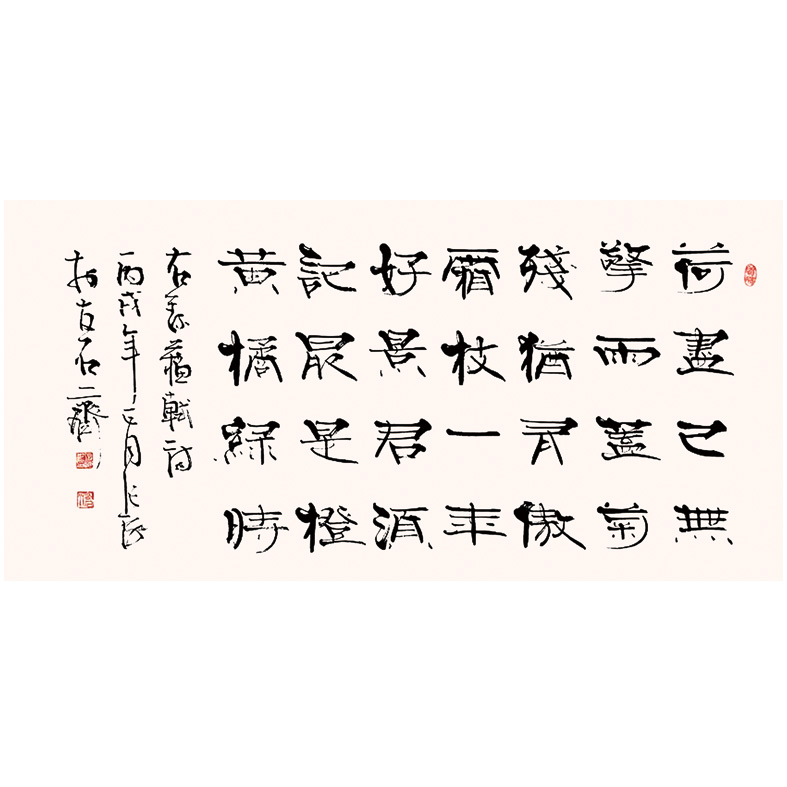 荷盡已無
擎雨蓋菊
殘猶有傲
霜枝一年
好景君須
記最是橙
黃橘綠時
右录蘇軾詩
丙戌年正月
於古石齋